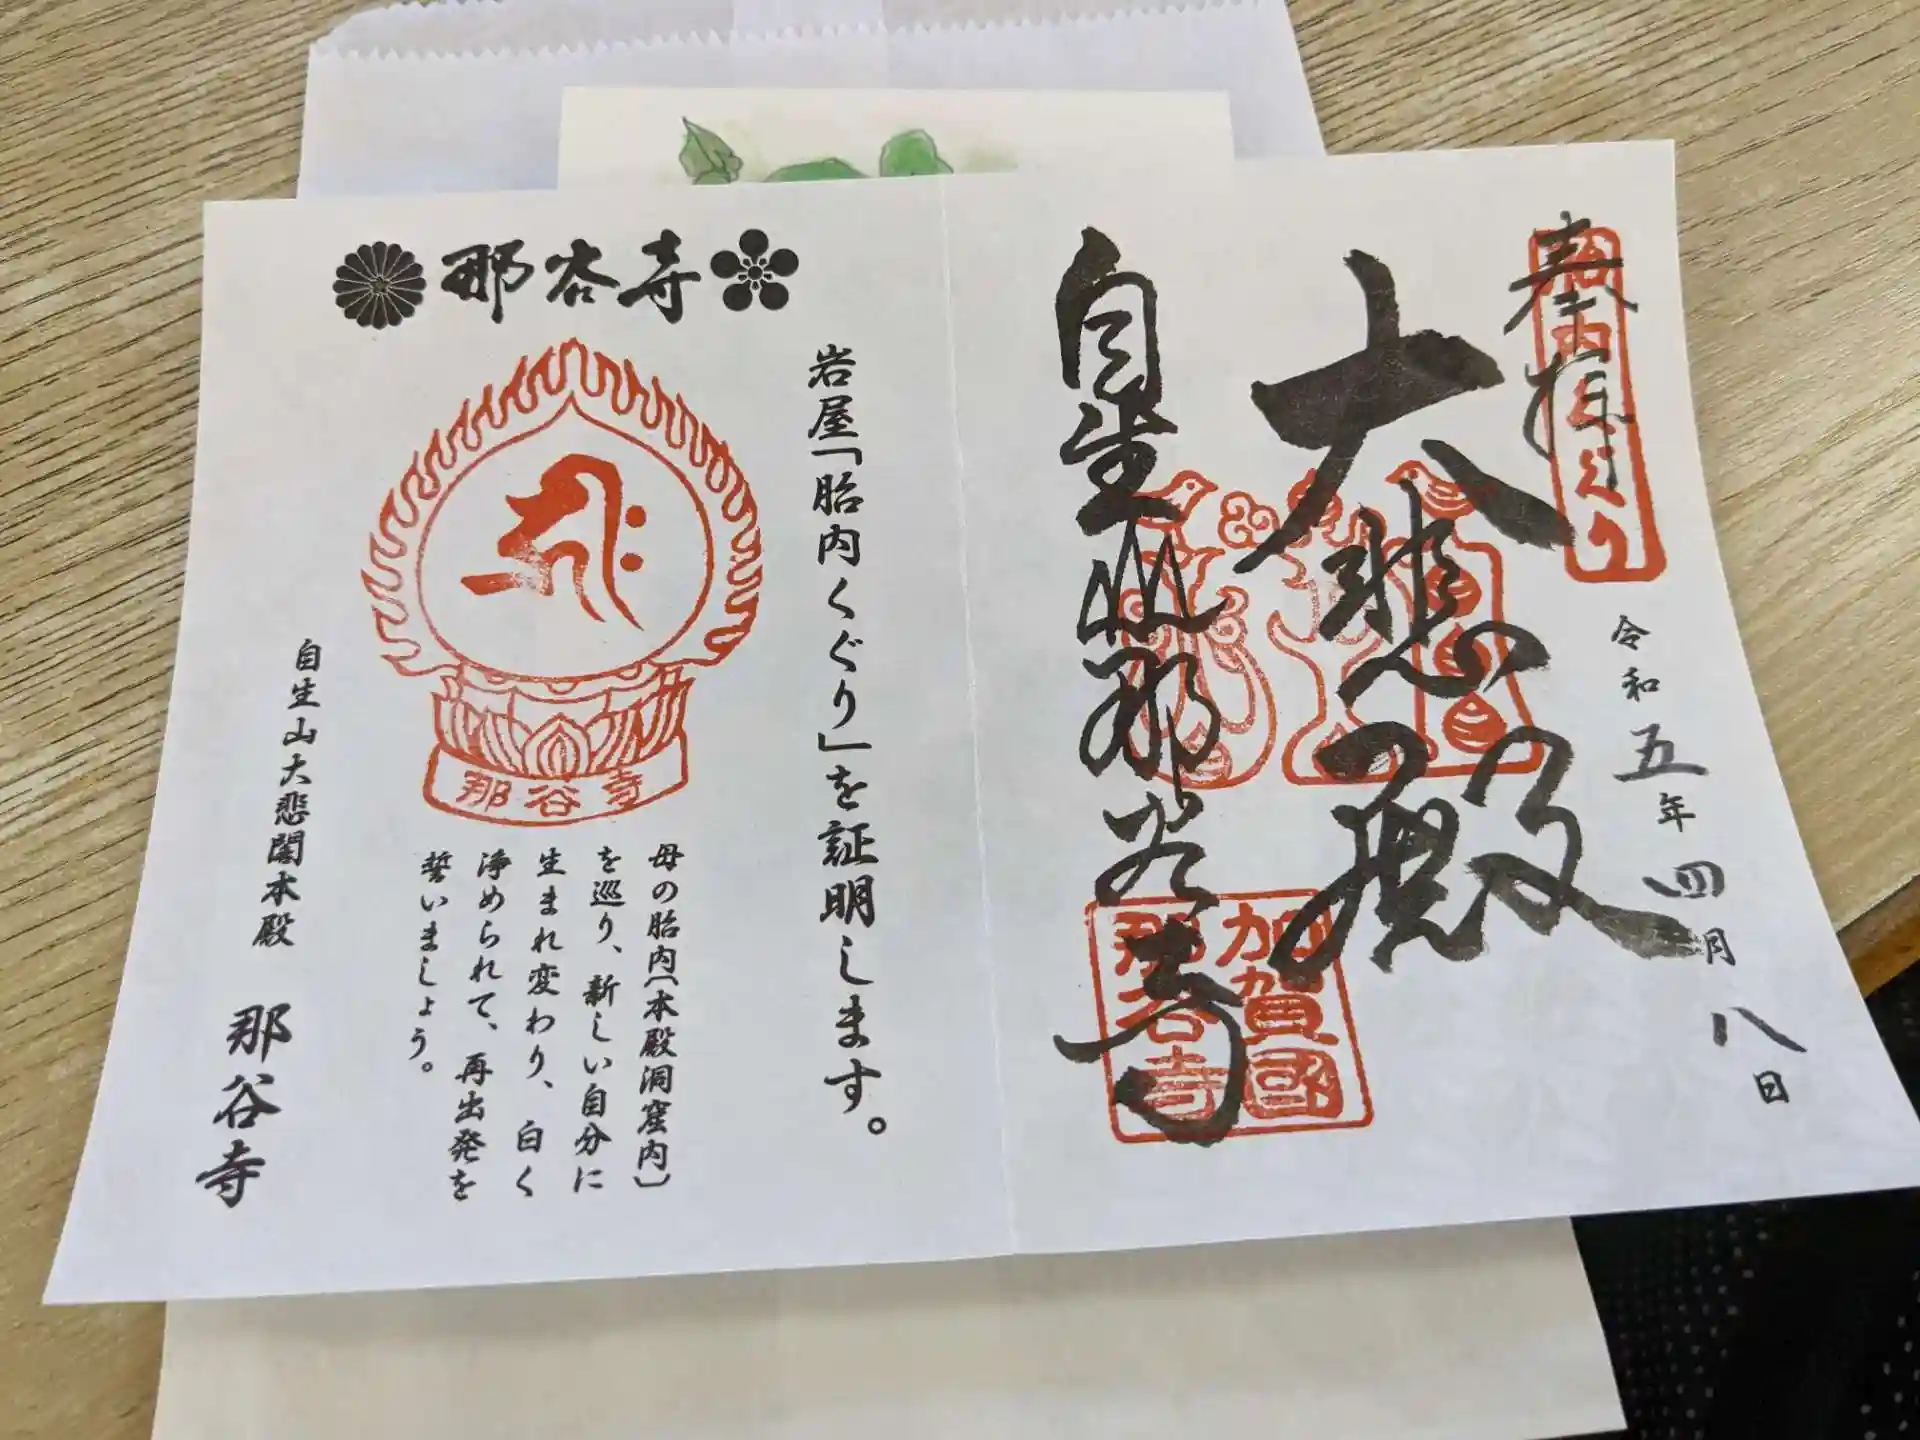 奉拝
胎内くぐり
大悲殿
自生山那谷寺
加賀國
那谷寺
令和五年四月八日
那谷寺
岩屋「胎内くぐり」を証明します。
那谷寺
母の胎内(本殿洞窟内)
を巡り、新しい自分に
生まれ変わり、白く
浄められて、再出発を
誓いましょう。
自生山大悲閣本殿 那谷寺